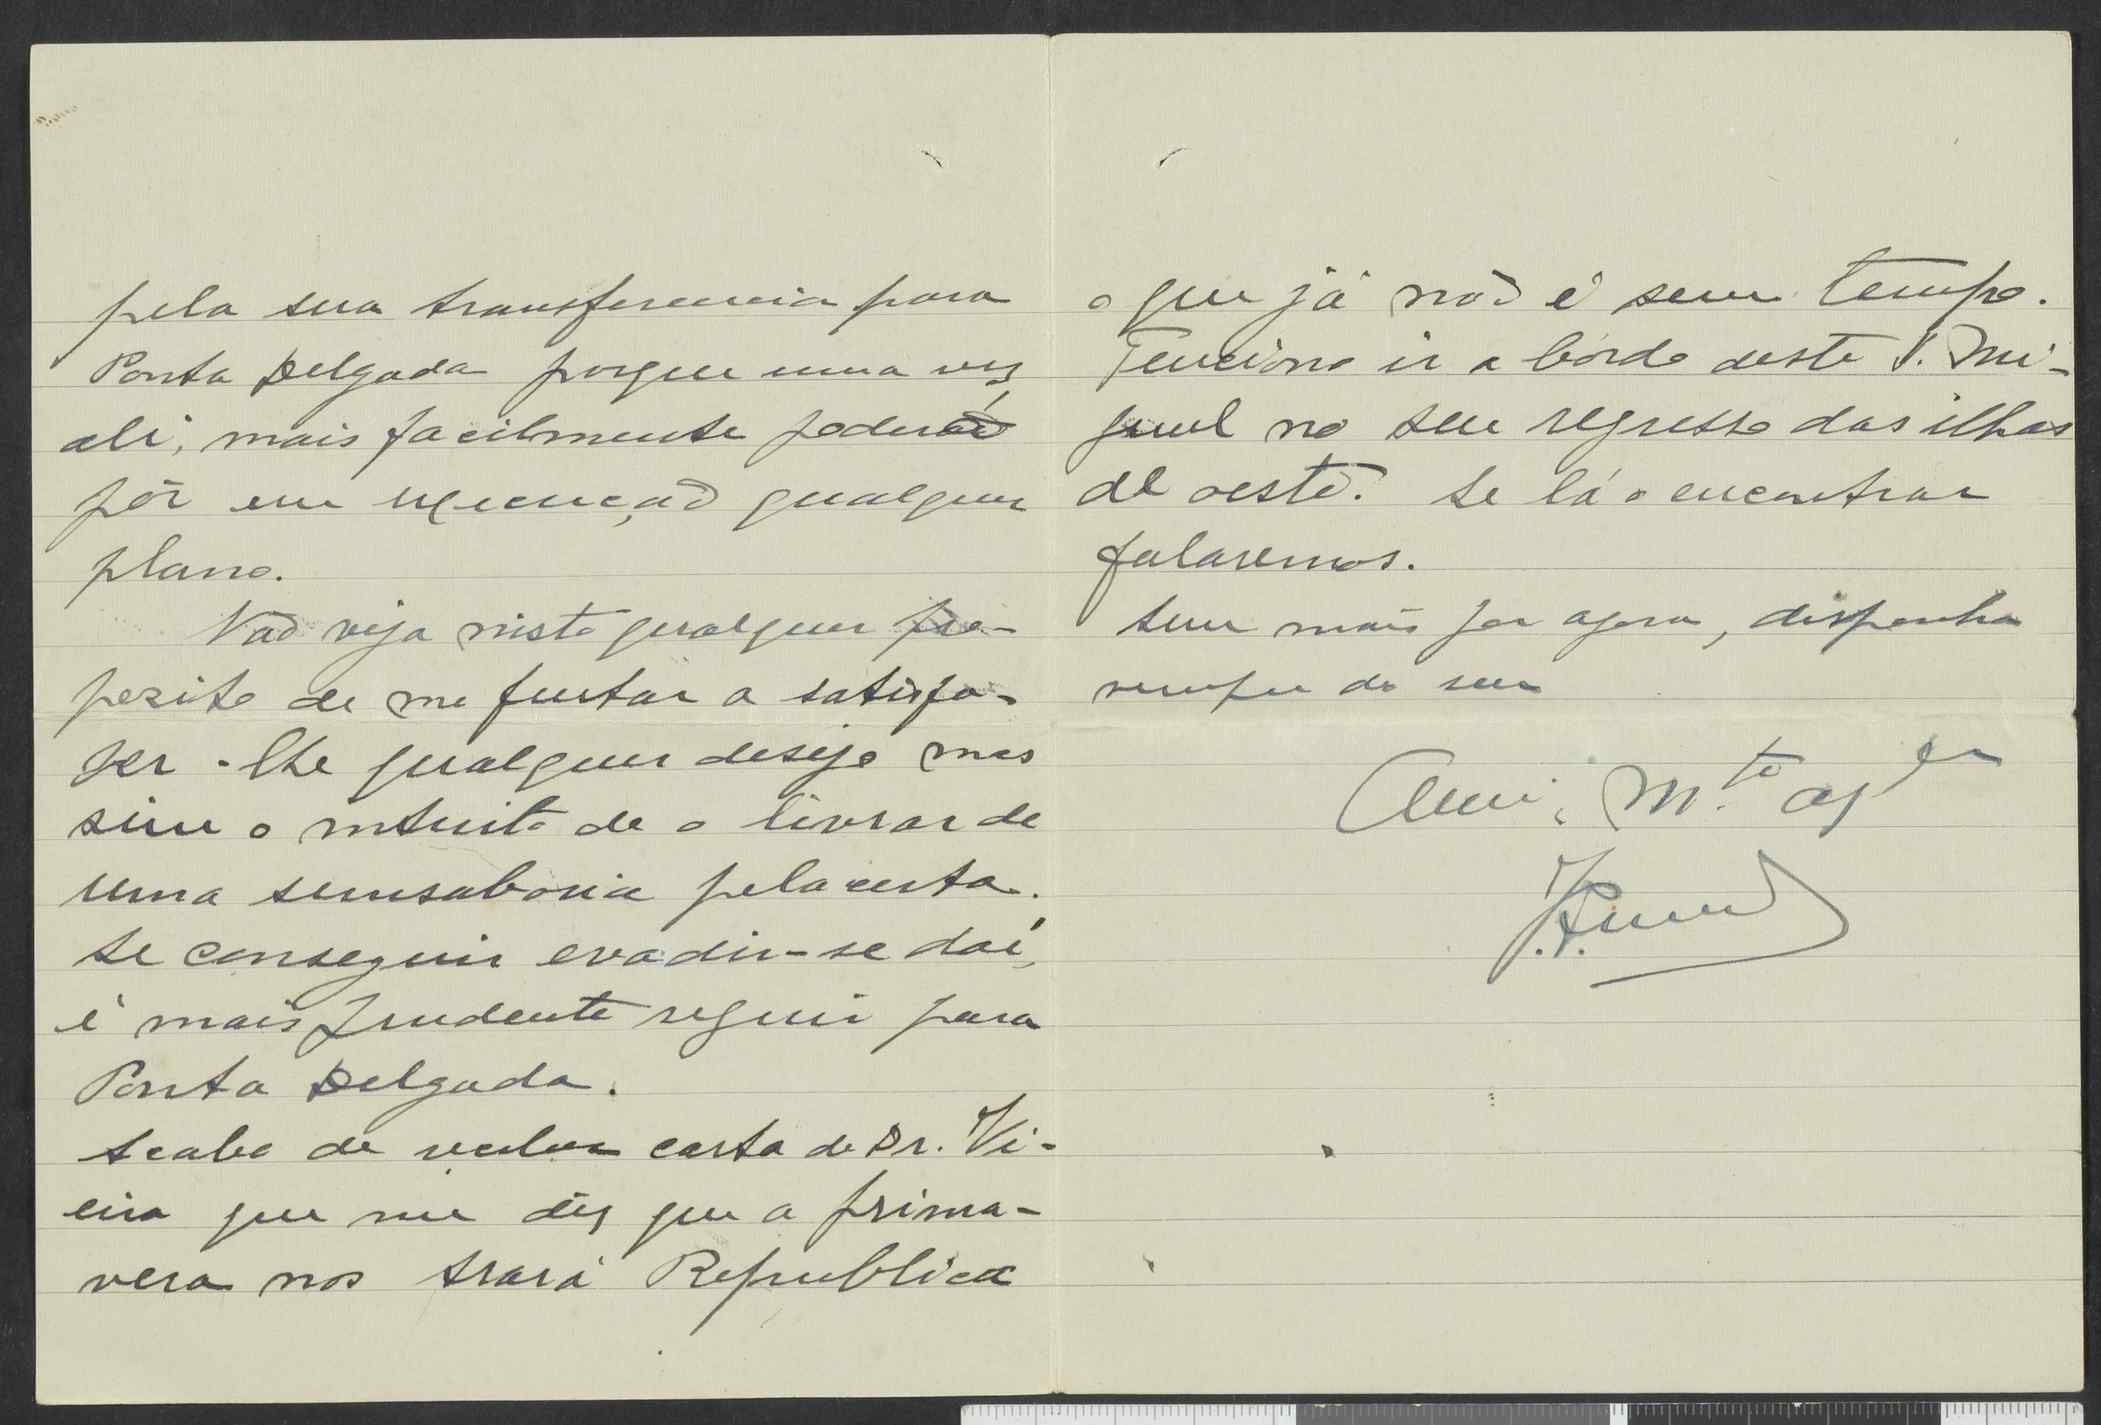 pela sua transferencia para
Ponta Delgada porque uma vez
ali, mais facilmente poderá
pôr em execução qualquer
plano.
Não veja nisto qualquer pro-
pozito de me furtar a satisfa-
zer-lhe qualquer desejo mas
sim o intuito de o livrar de
uma semsaboria pela certa.
Se conseguir evadir-se daí,
é mais prudente seguir para
Ponta Delgada.
Acabo de receber carta do Dr. Vi-
eira que me diz que a prima-
vera nos trará Republica
o que já não é sem tempo.
Tenciono ir a bórdo deste S. Mi-
guel no seu regresso das ilhas
de oeste. Se lá o encontrar
falaremos.
Sem mais por agora, disponha
sempre do seu
Am.º M.to ag